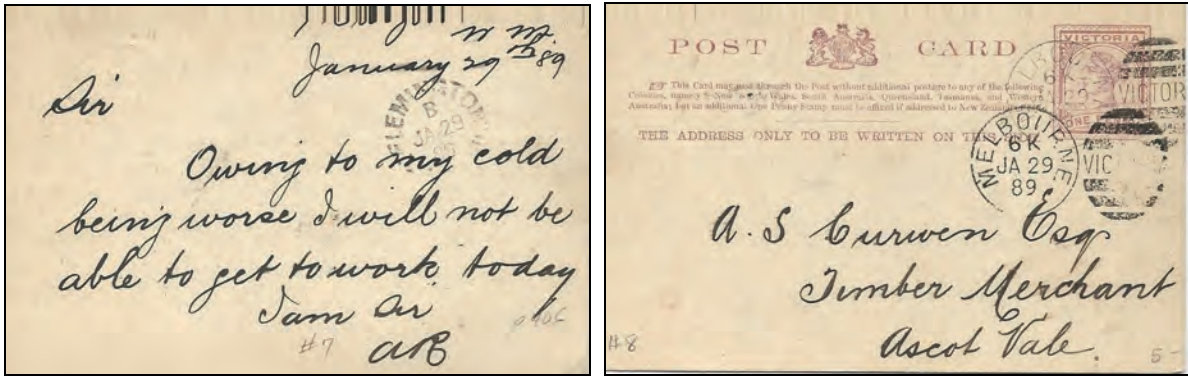 January 29th 89
Sir
FLEMINGTON
B
JA 29
Owing to my cold
being worse I will not be
able to get to work today
I am Sir
#7
POST CARD
VICTORIA
This Card may pass through the Post without additional postage to any of the following
Colonies, namely :- New South Wales, South Australia, Queensland, Tasmania, and Western
Australia; but an additional One Penny Stamp must be affixed if addressed to New Zealand
THE ADDRESS ONLY TO BE WRITTEN ON THIS SIDE
ONE
MELBOURNE
6K
JA 29
89
VICTOR
VIC
A. S Curwen Esq
Timber Merchant
Ascot Vale.
#8
5-